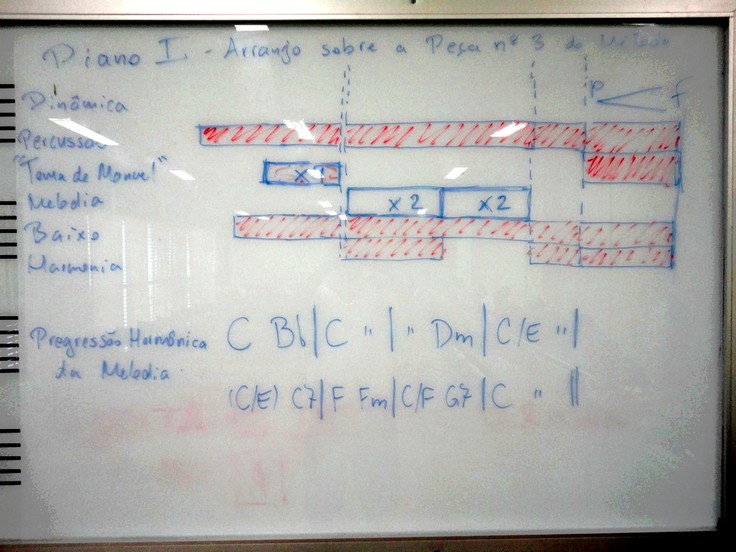 Piano I - Arranjo sobre a Peça nº 3 do Método
Dinâmica p < f
Percussão
"Tema de Manuel" x
Melodia x 2 x 2
Baixo
Harmonia
Progressão Harmônica
da Melodia
C Bb | C " | " Dm | C/E " |
(C/E) C7 | F Fm | C/F G7 | C " ||